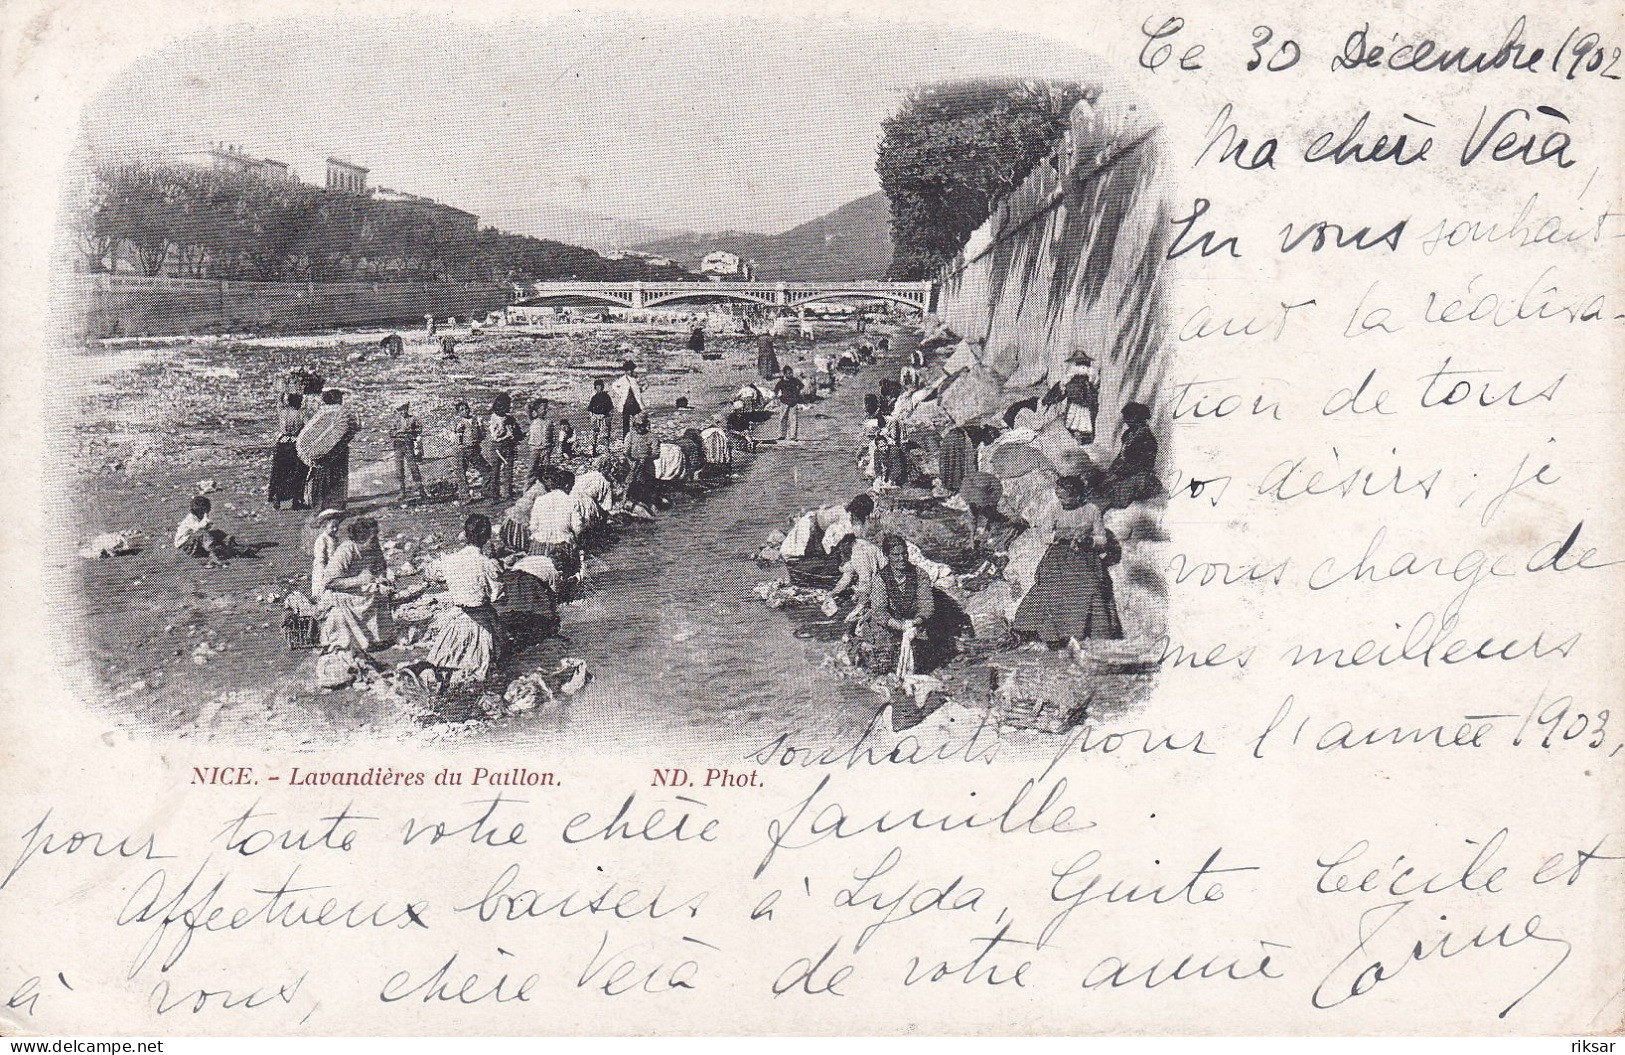 Ce 30 Décembre 1902
Ma chère Verà,
En vous souhait-
ant la réalisa-
tion de tous
vos désirs, je
vous charge de
mes meilleurs
souhaits pour l'année 1903,
NICE. - Lavandières du Paillon. ND. Phot.
pour toute votre chère famille.
Affectueux baisers à Lyda, Guite Cécile et
à vous, chère Verà de votre amie
riksar